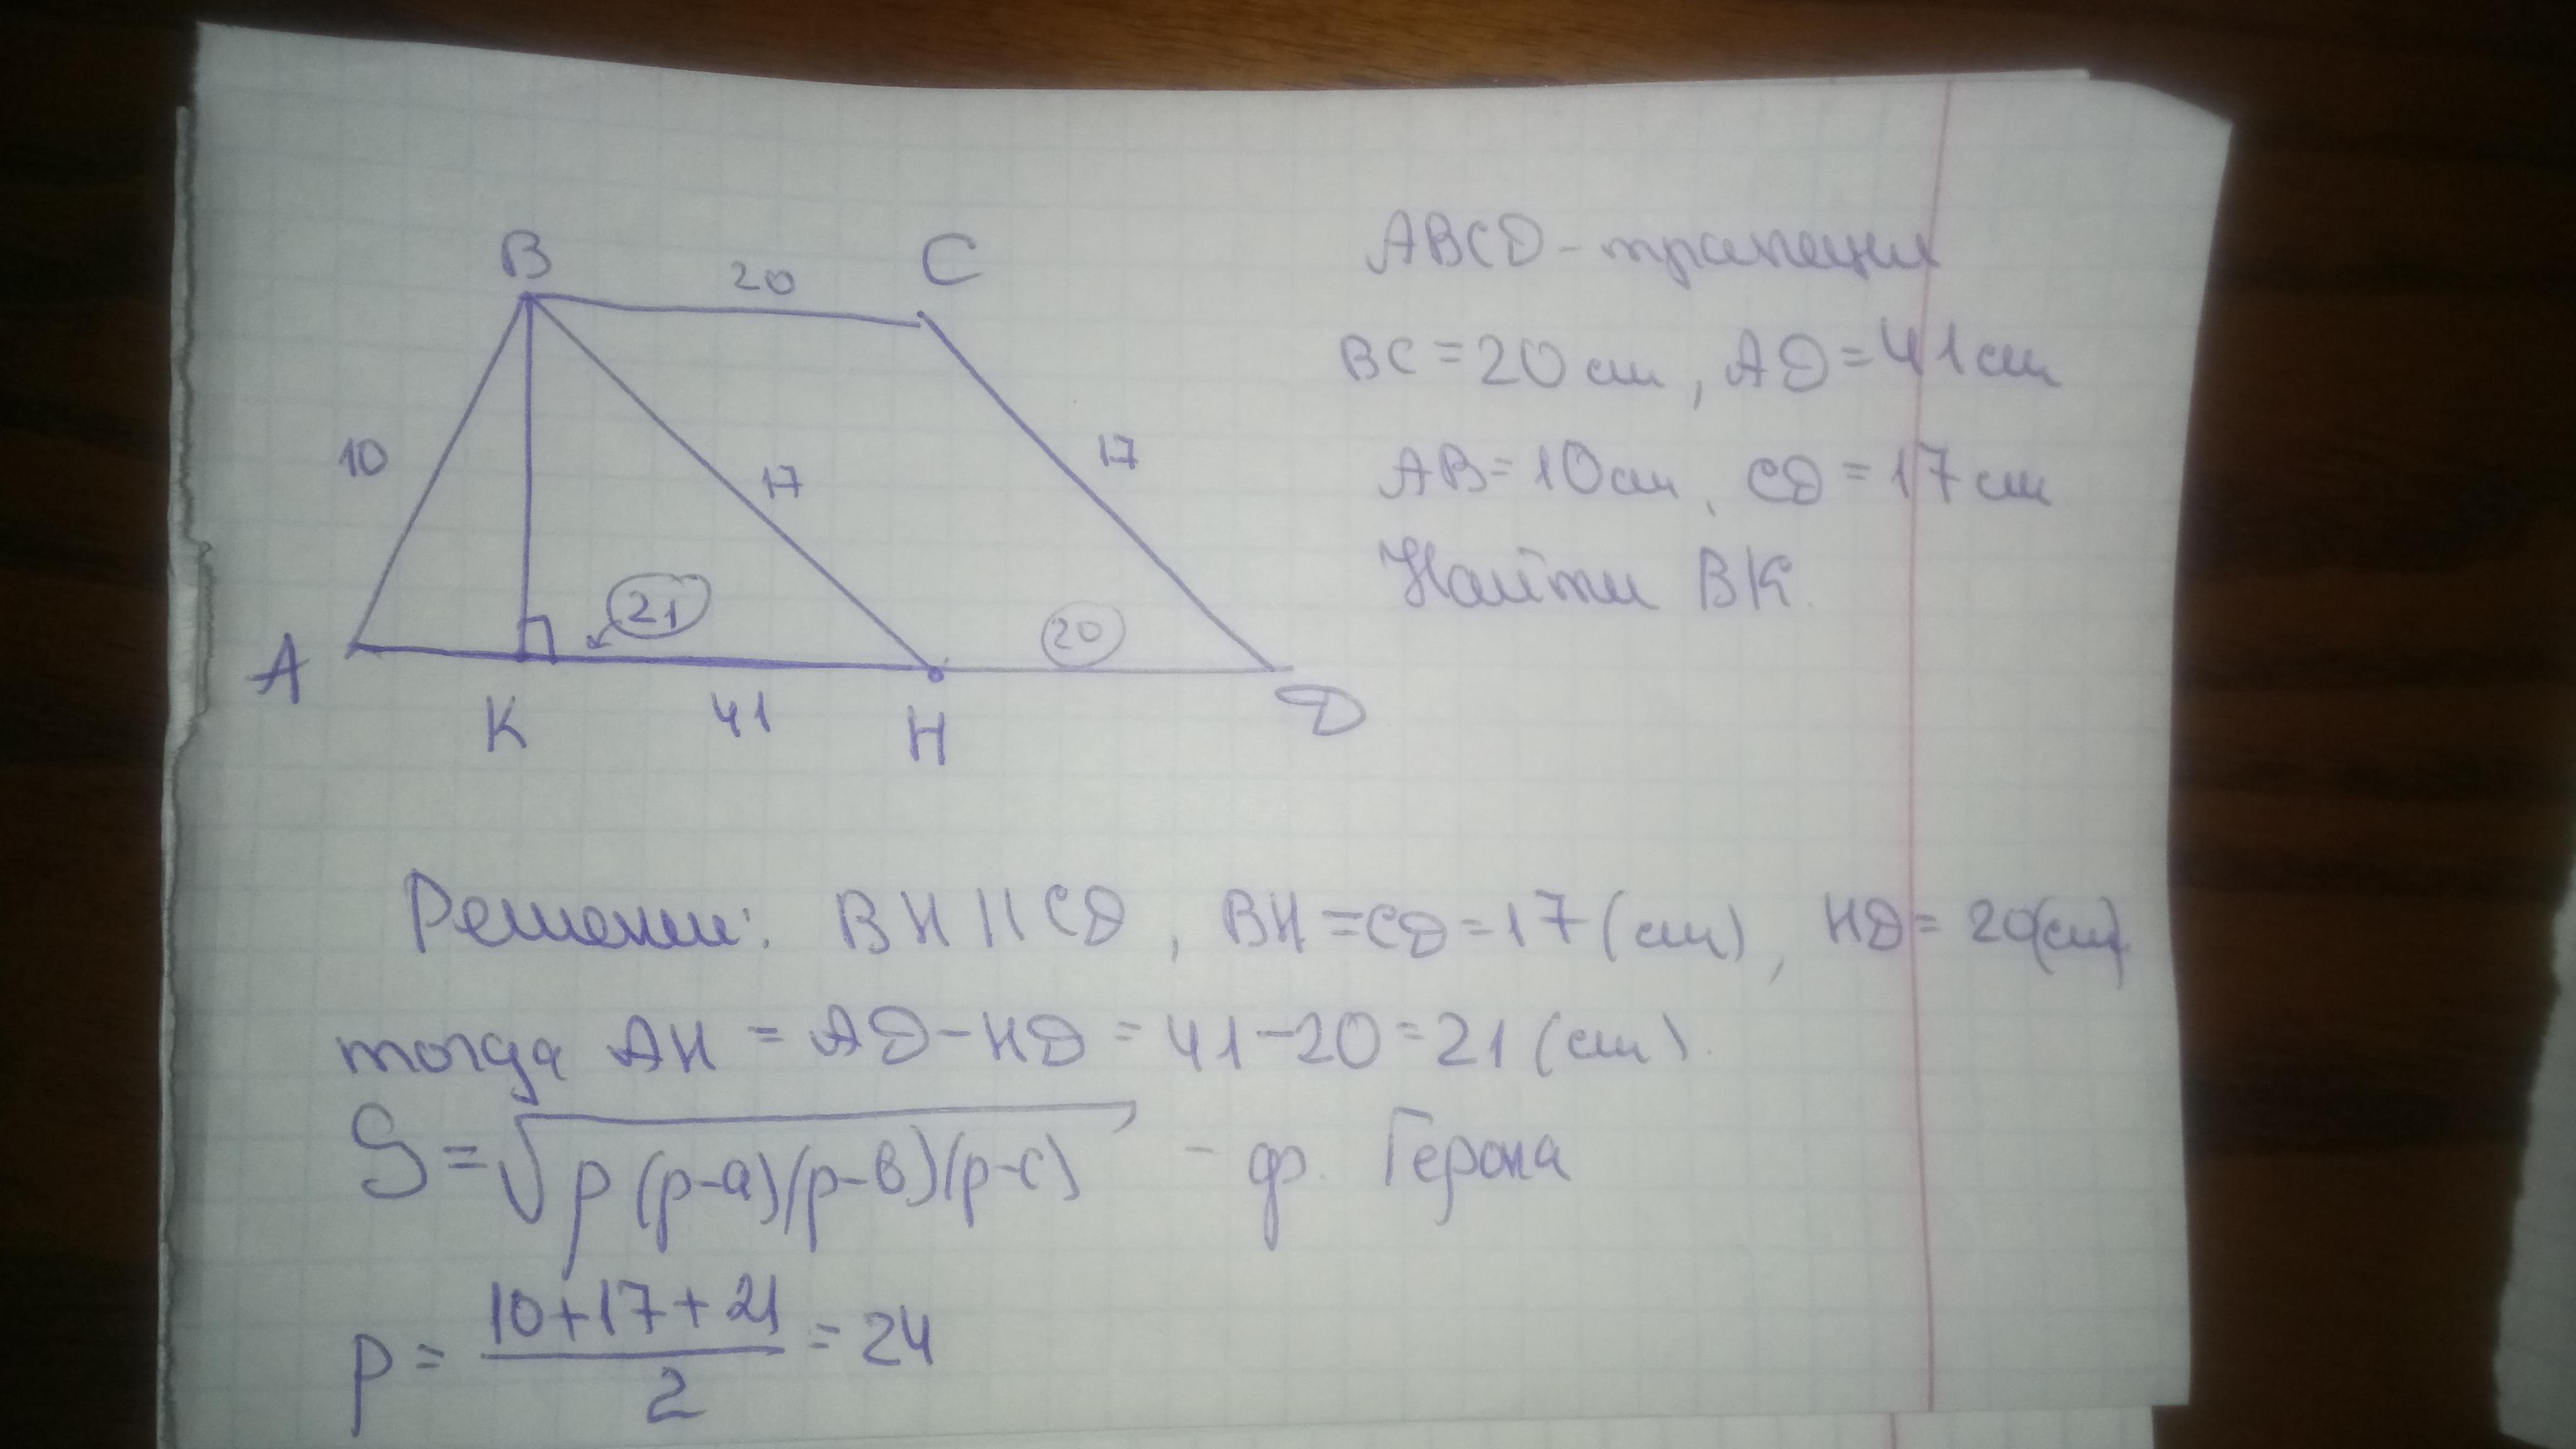 B
20
C
ABCD - трапеция
BC = 20 см, AD = 41 см
10
17
17
AB = 10 см, CD = 17 см
Найти BK.
21
20
A
K
41
H
D
Решение: BH || CD, BH = CD = 17 (см), HD = 20 (см)
тогда AH = AD - HD = 41 - 20 = 21 (см).
S = √p(p-a)(p-в)(p-c) - ф. Герона
p = (10+17+21)/2 = 24